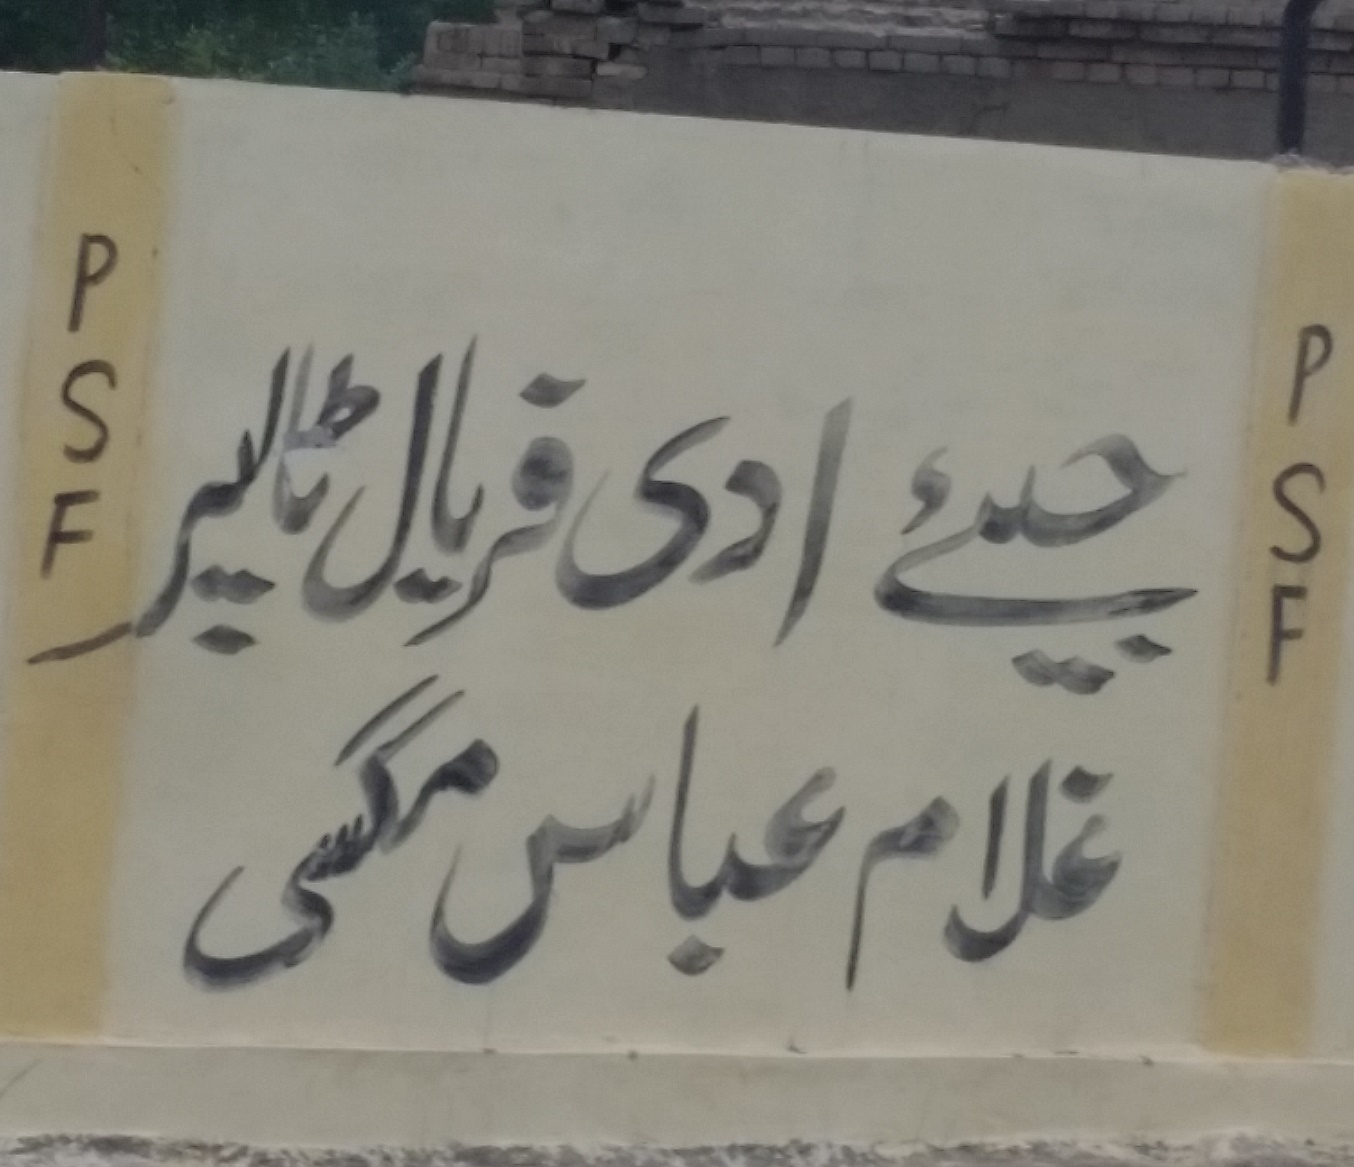 جیئے ادی فریال ٹالپر
غلام عباس مگسی
P
S
F
P
S
F